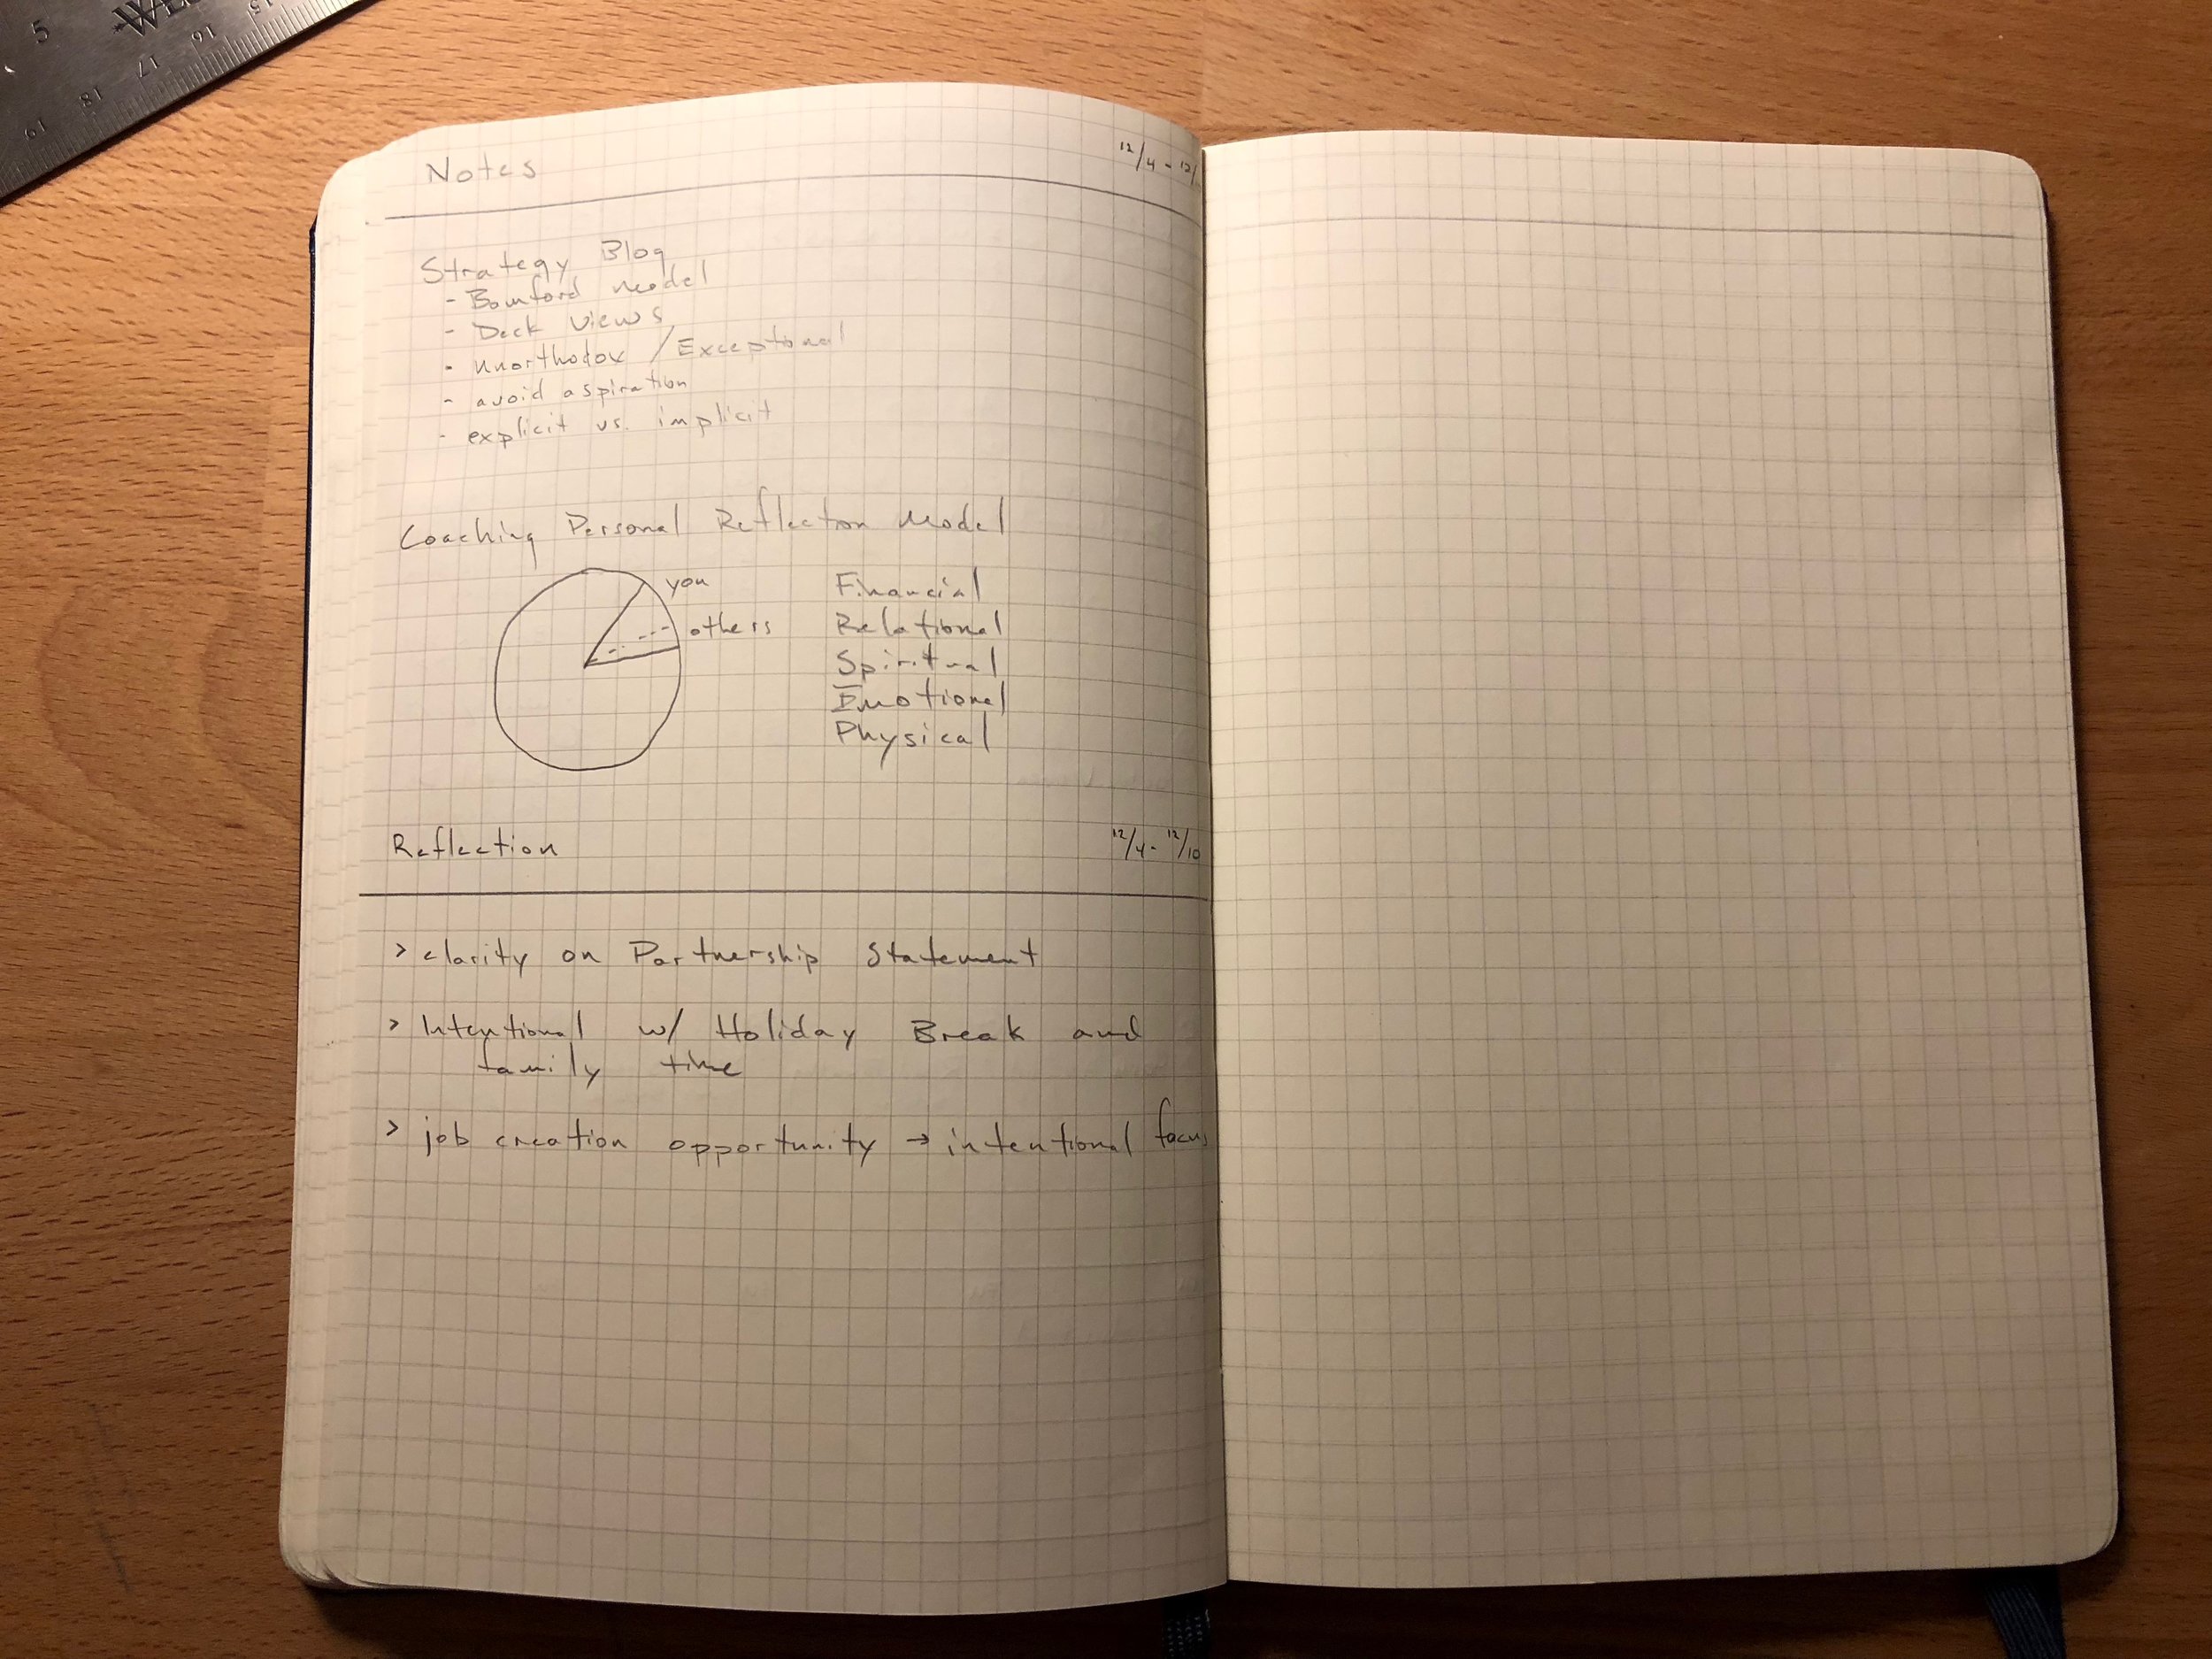 5
15
16
17
18
19
Notes 12/4 - 12/
Strategy Blog
- Bomford model
- Deck Views
- unorthodox / Exceptional
- avoid aspiration
- explicit vs. implicit
Coaching Personal Reflection Model
you
others
Financial
Relational
Spiritual
Emotional
Physical
Reflection 12/4 - 12/10
> clarity on Partnership Statement
> Intentional w/ Holiday Break and
family time
> job creation opportunity → intentional focus